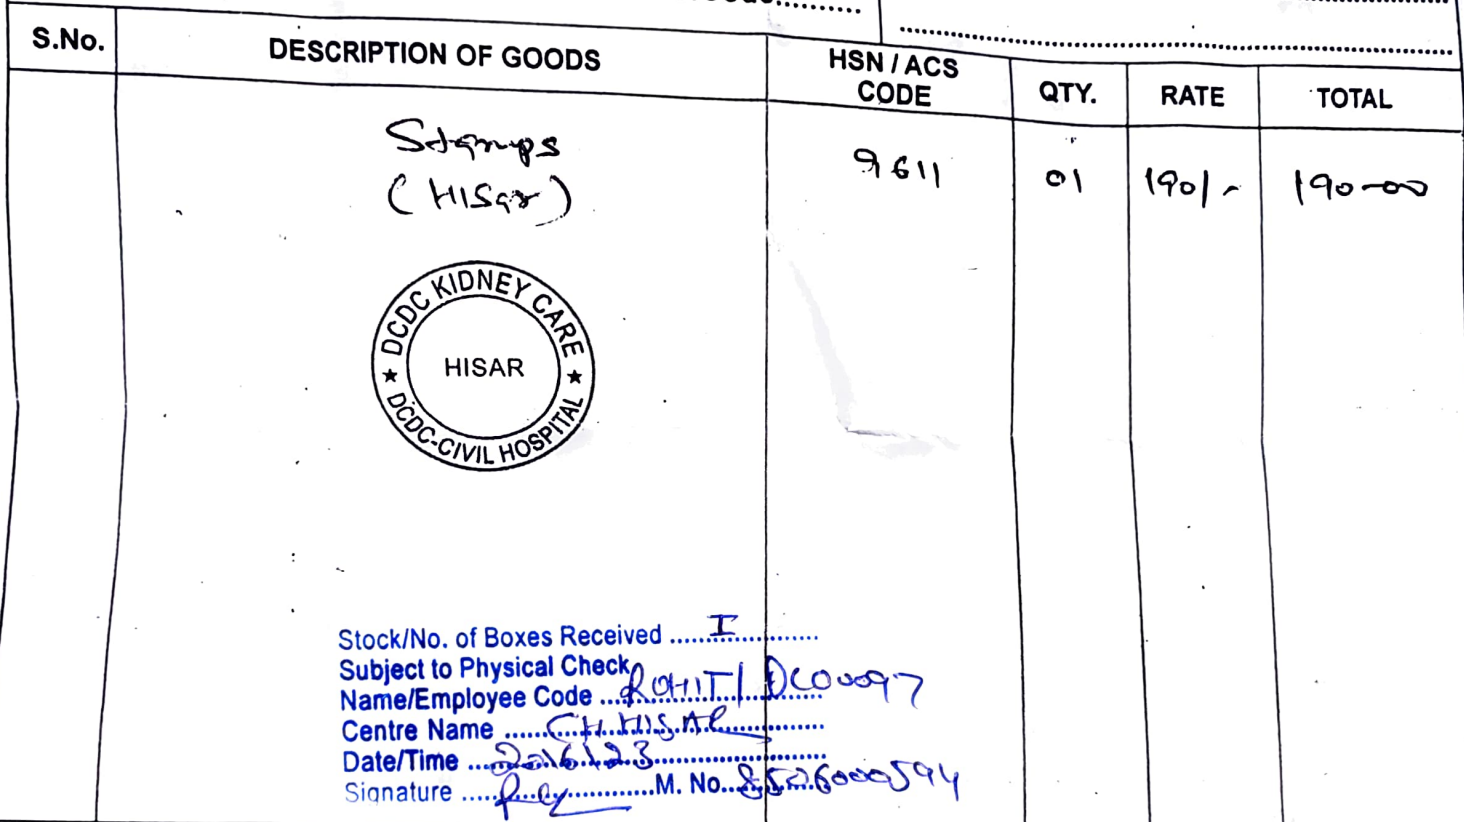 S.No. DESCRIPTION OF GOODS HSN / ACS CODE QTY. RATE TOTAL
Stamps 9611 01 190/- 190-00
(HISar)
DCDC KIDNEY CARE
HISAR
★ DCDC-CIVIL HOSPITAL ★
Stock/No. of Boxes Received ......I..............
Subject to Physical Check
Name/Employee Code ...ROHIT/DC00097
Centre Name ......CH.HISAR...............
Date/Time ....20/6/23........................
Signature .....................M. No..8526000594